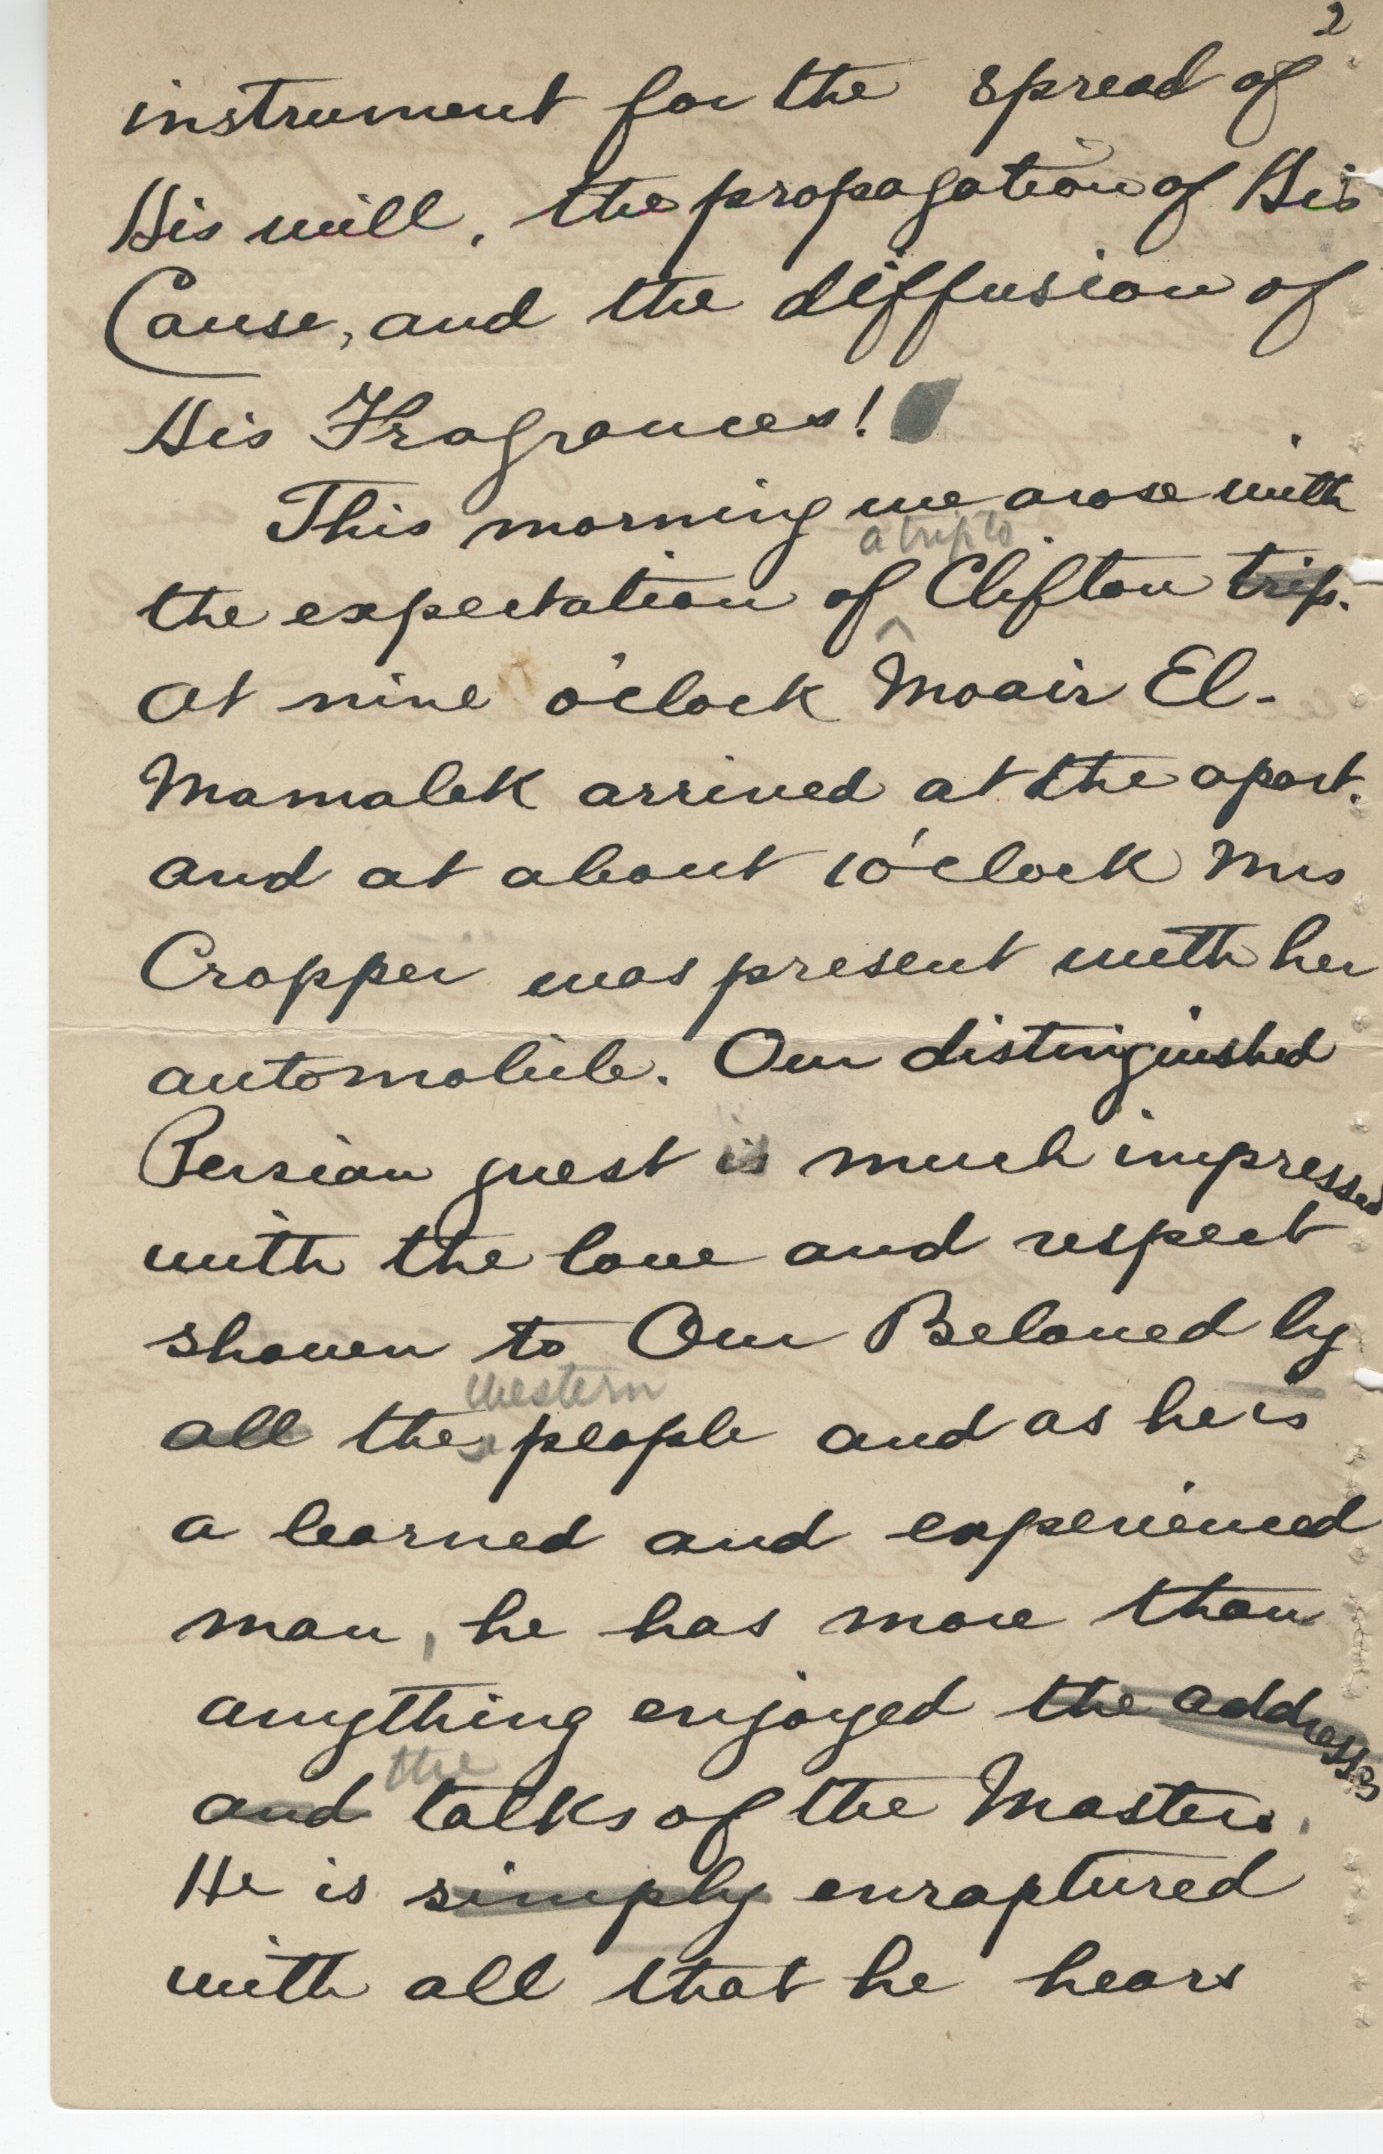 2
instrument for the spread of
His will, the propagation of His
Cause, and the diffusion of
His Fragrances!
This morning we arose with
a trip to
the expectation of Clifton trip.
At nine o'clock Moair El-
Mamalek arrived at the apart.
and at about 10 o'clock Mrs
Cropper was present with her
automobile. Our distinguished
Persian guest is much impressed
with the love and respect
shown to Our Beloved by
western
all the people and as he is
a learned and experienced
man, he has more than
anything enjoyed the addresses
the
and talks of the Master.
He is simply enraptured
with all that he hears